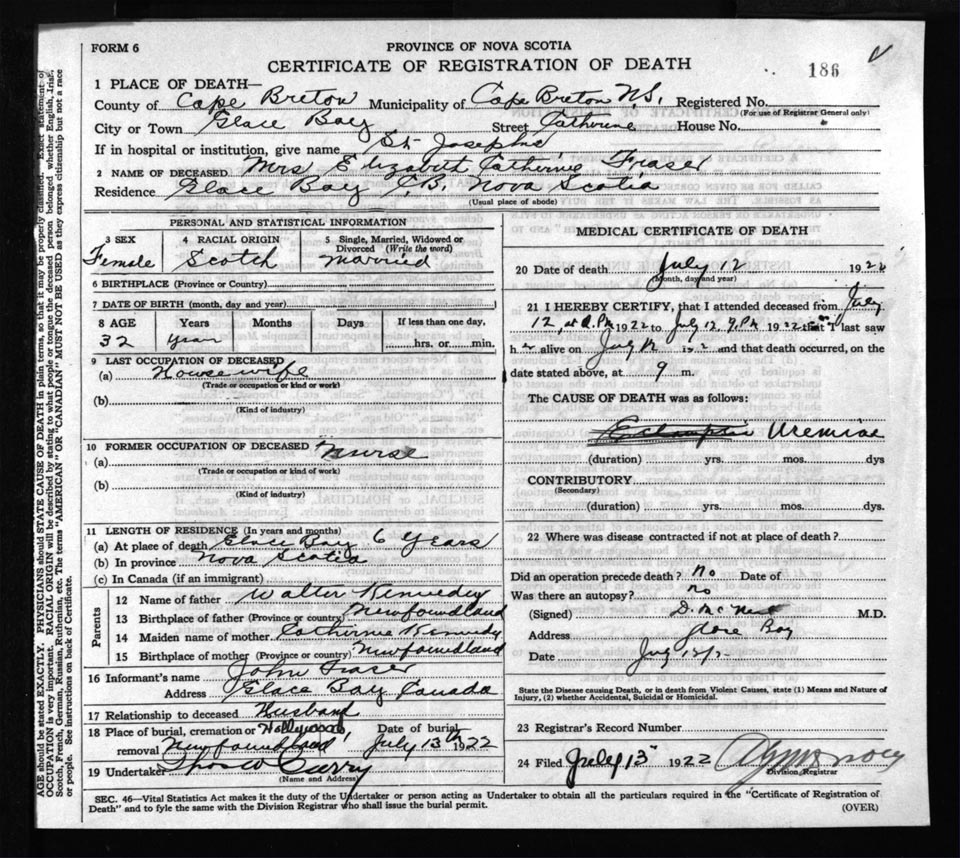 FORM 6
PROVINCE OF NOVA SCOTIA
CERTIFICATE OF REGISTRATION OF DEATH
186
1 PLACE OF DEATH—
County of Cape Breton Municipality of Cape Breton N.S. Registered No.
(For use of Registrar General only)
City or Town Glace Bay Street Catherine House No.
If in hospital or institution, give name St. Josephs
2 NAME OF DECEASED Mrs Elizabeth Catherine Fraser
Residence Glace Bay C.B. Nova Scotia
(Usual place of abode)
PERSONAL AND STATISTICAL INFORMATION
3 SEX 4 RACIAL ORIGIN 5 Single, Married, Widowed or Divorced (Write the word)
Female Scotch Married
6 BIRTHPLACE (Province or Country)
7 DATE OF BIRTH (month, day and year)
8 AGE Years Months Days If less than one day,
32 Years hrs. or min.
9 LAST OCCUPATION OF DECEASED
(a) Housewife
(Trade or occupation or kind or work)
(b)
(Kind of industry)
10 FORMER OCCUPATION OF DECEASED Nurse
(a)
(Trade or occupation or kind of work)
(b)
(Kind of industry)
11 LENGTH OF RESIDENCE (In years and months)
(a) At place of death Glace Bay 6 Years
(b) In province Nova Scotia
(c) In Canada (if an immigrant)
Parents
12 Name of father Walter Kennedy
13 Birthplace of father (Province or country) Newfoundland
14 Maiden name of mother Catherine Kennedy
15 Birthplace of mother (Province or country) Newfoundland
16 Informant's name John Fraser
Address Glace Bay Canada
17 Relationship to deceased Husband
18 Place of burial, cremation or Hollywood, Date of burial
removal Newfoundland July 13th 1922
19 Undertaker Curry
(Name and Address)
MEDICAL CERTIFICATE OF DEATH
20 Date of death July 12 1922
(Month, day and year)
21 I HEREBY CERTIFY, that I attended deceased from July
12 1922 to July 12 9 P.M. 1922 that I last saw
h alive on July 12 and that death occurred, on the
date stated above, at 9 m.
The CAUSE OF DEATH was as follows:
Uremia
(duration) yrs. mos. dys
CONTRIBUTORY
(Secondary)
(duration) yrs. mos. dys.
22 Where was disease contracted if not at place of death?
Did an operation precede death? no Date of
Was there an autopsy? no
(Signed) D. M.D.
Address Glace Bay
Date July
State the Disease causing Death, or in death from Violent Causes, state (1) Means and Nature of
Injury, (2) whether Accidental, Suicidal or Homicidal.
23 Registrar's Record Number
24 Filed July 13th 1922
Division Registrar
SEC. 46—Vital Statistics Act makes it the duty of the Undertaker or person acting as Undertaker to obtain all the particulars required in the "Certificate of Registration of
Death" and to fyle the same with the Division Registrar who shall issue the burial permit.
(OVER)
AGE should be stated EXACTLY. PHYSICIANS should STATE CAUSE OF DEATH in plain terms, so that it may be properly classified. Exact statement of
OCCUPATION is very important. RACIAL ORIGIN will be described by stating to what people or tongue the deceased person belonged whether English, Irish,
Scotch, French, German, Russian, Ruthenian, etc. The terms "AMERICAN" OR "CANADIAN" MUST NOT BE USED as they express citizenship but not a race
or people. See instructions on back of Certificate.